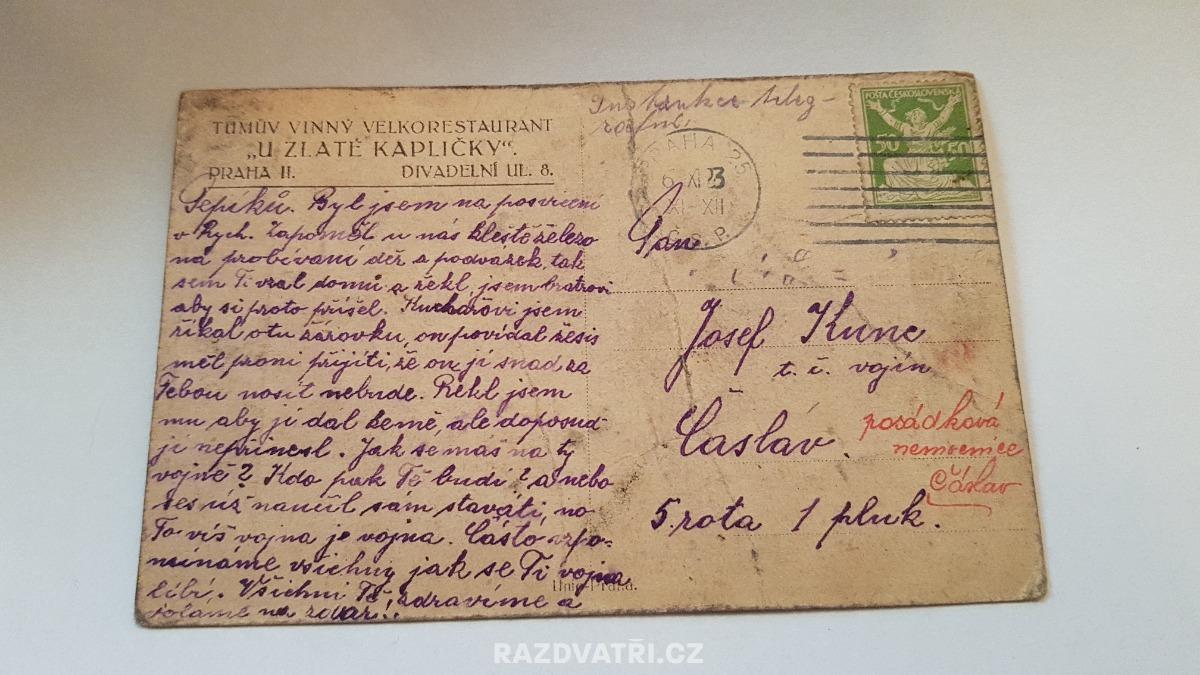 TŮMŮV VINNÝ VELKORESTAURANT
„U ZLATÉ KAPLIČKY“.
PRAHA II. DIVADELNÍ UL. 8.
Pepíků. Byl jsem na posvícení
v Rych. Zapoměl u nás kleště železo
na probívání děr a podvazek, tak
sem Ti vzal domů a řekl jsem bratrovi
aby si proto přišel. Kuchařovi jsem
říkal otu žárovku, on povídal žesis
měl proni přijíti, že on jí snad za
Tebou nosit nebude. Řekl jsem
mu, aby jí dal kemě, ale doposud
jí nepřinesl. Jak se máš na tý
vojně? Kdo pak Tě budí? a nebo
ses už naučil sám stávati, no
To víš vojna je vojna. Částo vzpo-
mínáme všichny jak se Ti vojna
líbí. Všichni Tě zdravíme a
voláme na zdar!.
Unie Praha.
PRAHA 25
6 XI 23
XI-XII
Č.S.P.
POŠTA ČESKOSLOVENSKÁ
50 50
Pan
Josef Kunc
t. č. vojín
Čáslav.
5. rota 1 pluk.
posádková
nemocnice
Čáslav
RAZDVATŘI.CZ